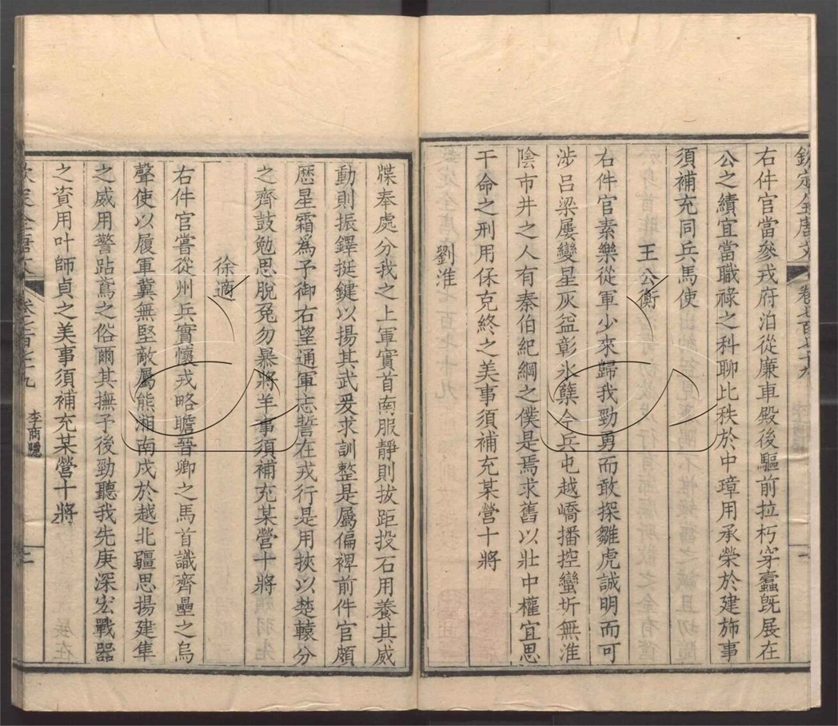 欽定全唐文 卷七百七十九
右件官當參戎府洎從廉車殿後驅前拉朽穿蠹既展在
公之績宜當職祿之科聊比秩於中璋用承榮於建斾事
須補充同兵馬使
王公衡
右件官素樂從軍少來歸我勁勇而敢探雛虎誠明而可
涉呂梁屢變星灰益彰氷櫱今兵屯越嶠播控蠻圻無淮
陰市井之人有秦伯紀綱之僕是焉求舊以壯中權宜思
干命之刑用保克終之美事須補充某營十將
劉淮
牒奉處分我之上軍實首南服靜則拔距投石用養其威
動則振鐸挺鍵以揚其武爰求訓整是屬偏裨前件官頗
歷星霜爲予御右望通軍志誓在戎行是用挾以楚轅分
之齊鼓勉思脫兔勿暴將羊事須補充某營十將
徐適
右件官嘗從州兵實懷戎略瞻晉卿之馬首識齊壘之烏
聲使以履軍冀無堅敵屬熊湘南戍於越北疆思揚建隼
之威用警跕鳶之俗爾其撫予後勁聽我先庚深宏戰器
之資用叶師貞之美事須補充某營十將
欽定全唐文 卷七百七十九 李商隱 二